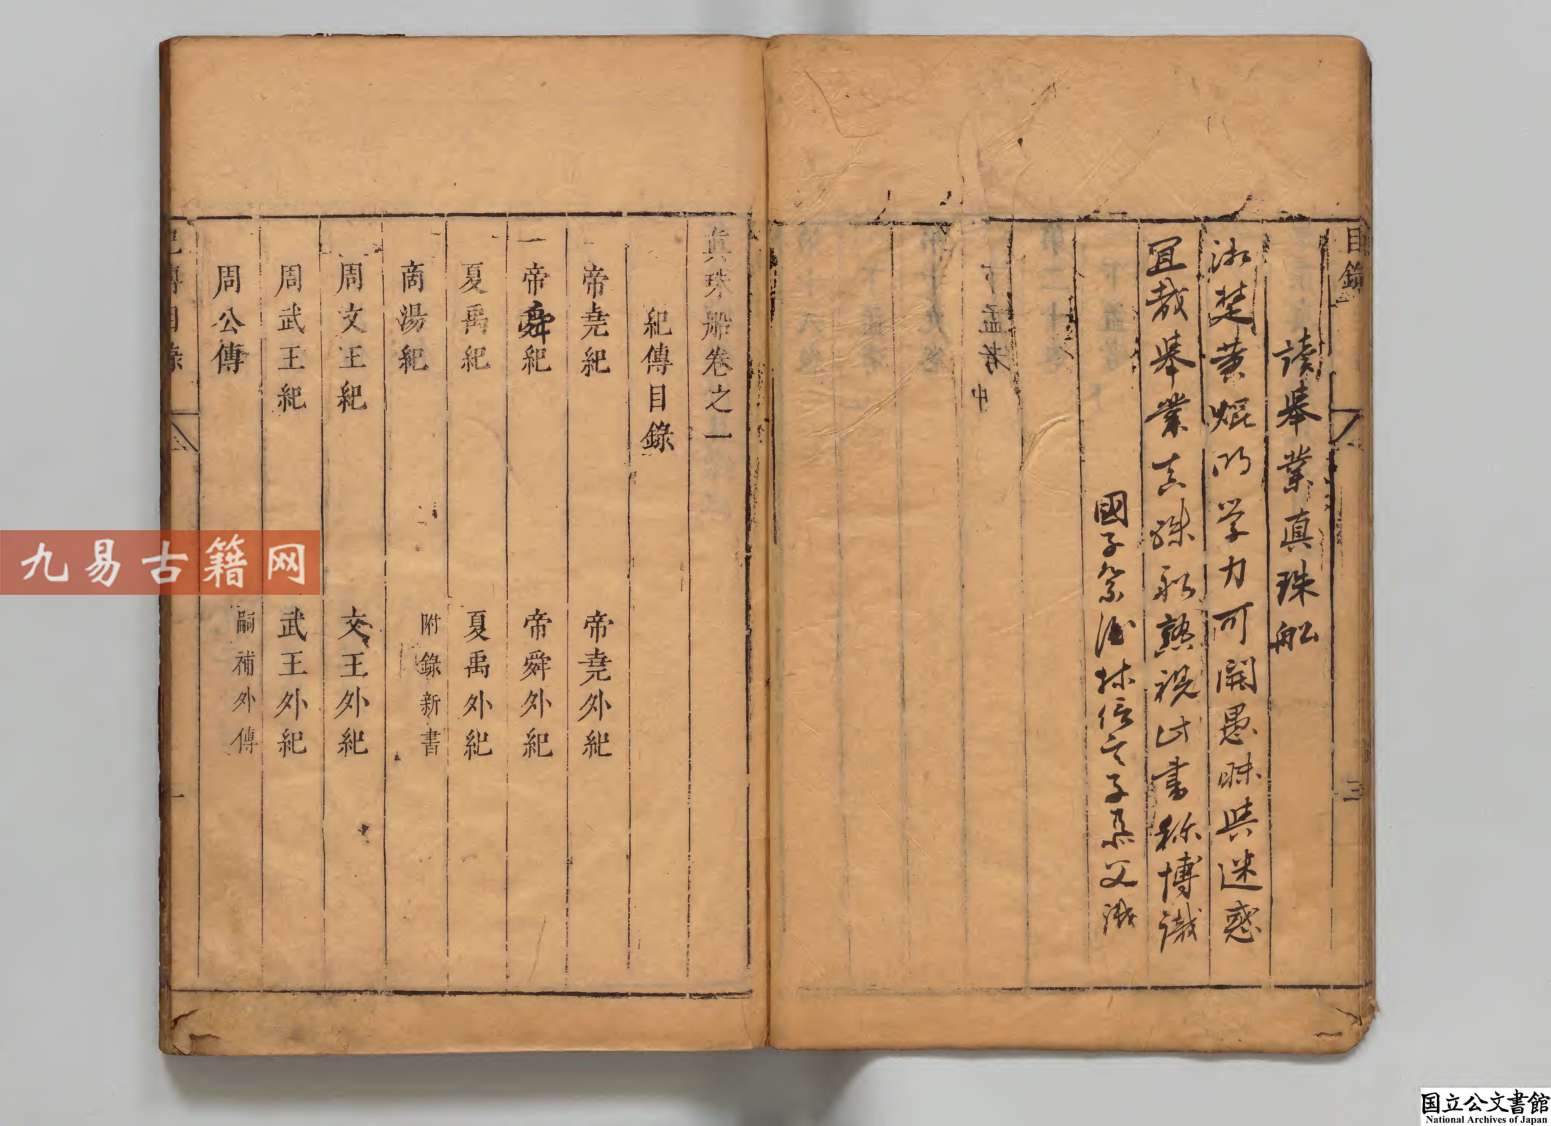 目錄
讀舉業真珠船
湖楚黄焜明学力可開愚昧與迷惑
宜哉舉業真珠船熟視此書称博識
國子祭酒林信言子恭父識
三
真珠船卷之一
紀傳目錄
帝堯紀 帝堯外紀
帝舜紀 帝舜外紀
夏禹紀 夏禹外紀
商湯紀 附錄新書
周文王紀 文王外紀
周武王紀 武王外紀
周公傳 嗣補外傳
紀傳目錄
一
九易古籍网
国立公文書館
National Archives of Japan